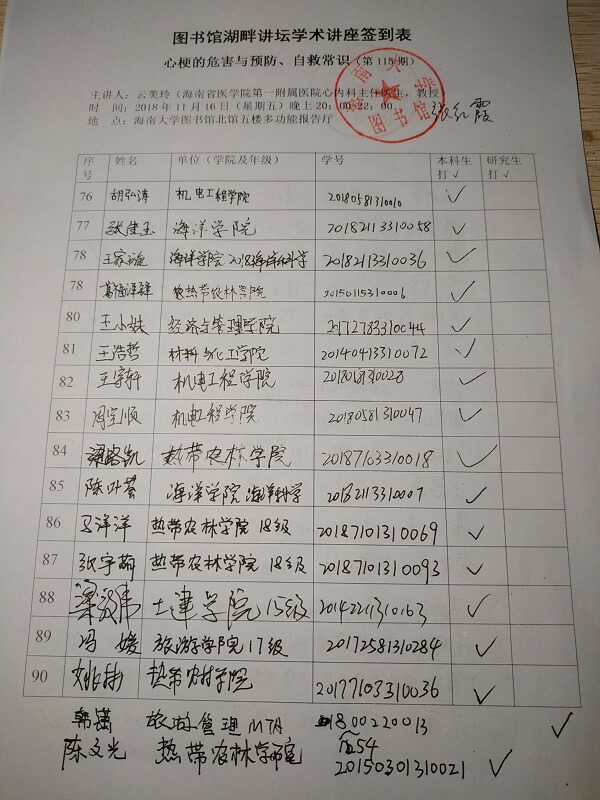 图书馆湖畔讲坛学术讲座签到表
心梗的危害与预防、自救常识（第 115 期）
主讲人：云美玲（海南省医学院第一附属医院心内科主任医生，教授
时 间：2018 年 11 月 16 日（星期五）晚上 20：00-22：00
地 点：海南大学图书馆北馆五楼多功能报告厅
张红霞
图书馆
序号 姓名 单位（学院及年级） 学号 本科生打√ 研究生打√
76 胡弘涛 机电工程学院 20180581310010 √
77 张佳玉 海洋学院 20182113310058 √
78 王家 海洋学院 2018海洋科学 20182113310036 √
78 农热带农林学院 20150115310006 √
80 王小 经济与管理学院 20172783310044 √
81 王浩哲 材料与化工学院 20140413310072 √
82 王宇轩 机电工程学院 20180581310028 √
83 周完顺 机电工程学院 20180581310047 √
84 梁路凯 热带农林学院 20187103310018 √
85 陈叶 海洋学院 海洋科学 20182113310007 √
86 马洋洋 热带农林学院 18级 20187101310069 √
87 张宇萌 热带农林学院 18级 20187101310093 √
88 梁 伟 土建学院 15级 20142211310163 √
89 冯媛 旅游学院 17级 20172581310284 √
90 姚彬 热带农林学院 20177103310036 √
韩 旅游管理 MTA 1800220013 √
54
陈文光 热带农林学院 20150301310021 √